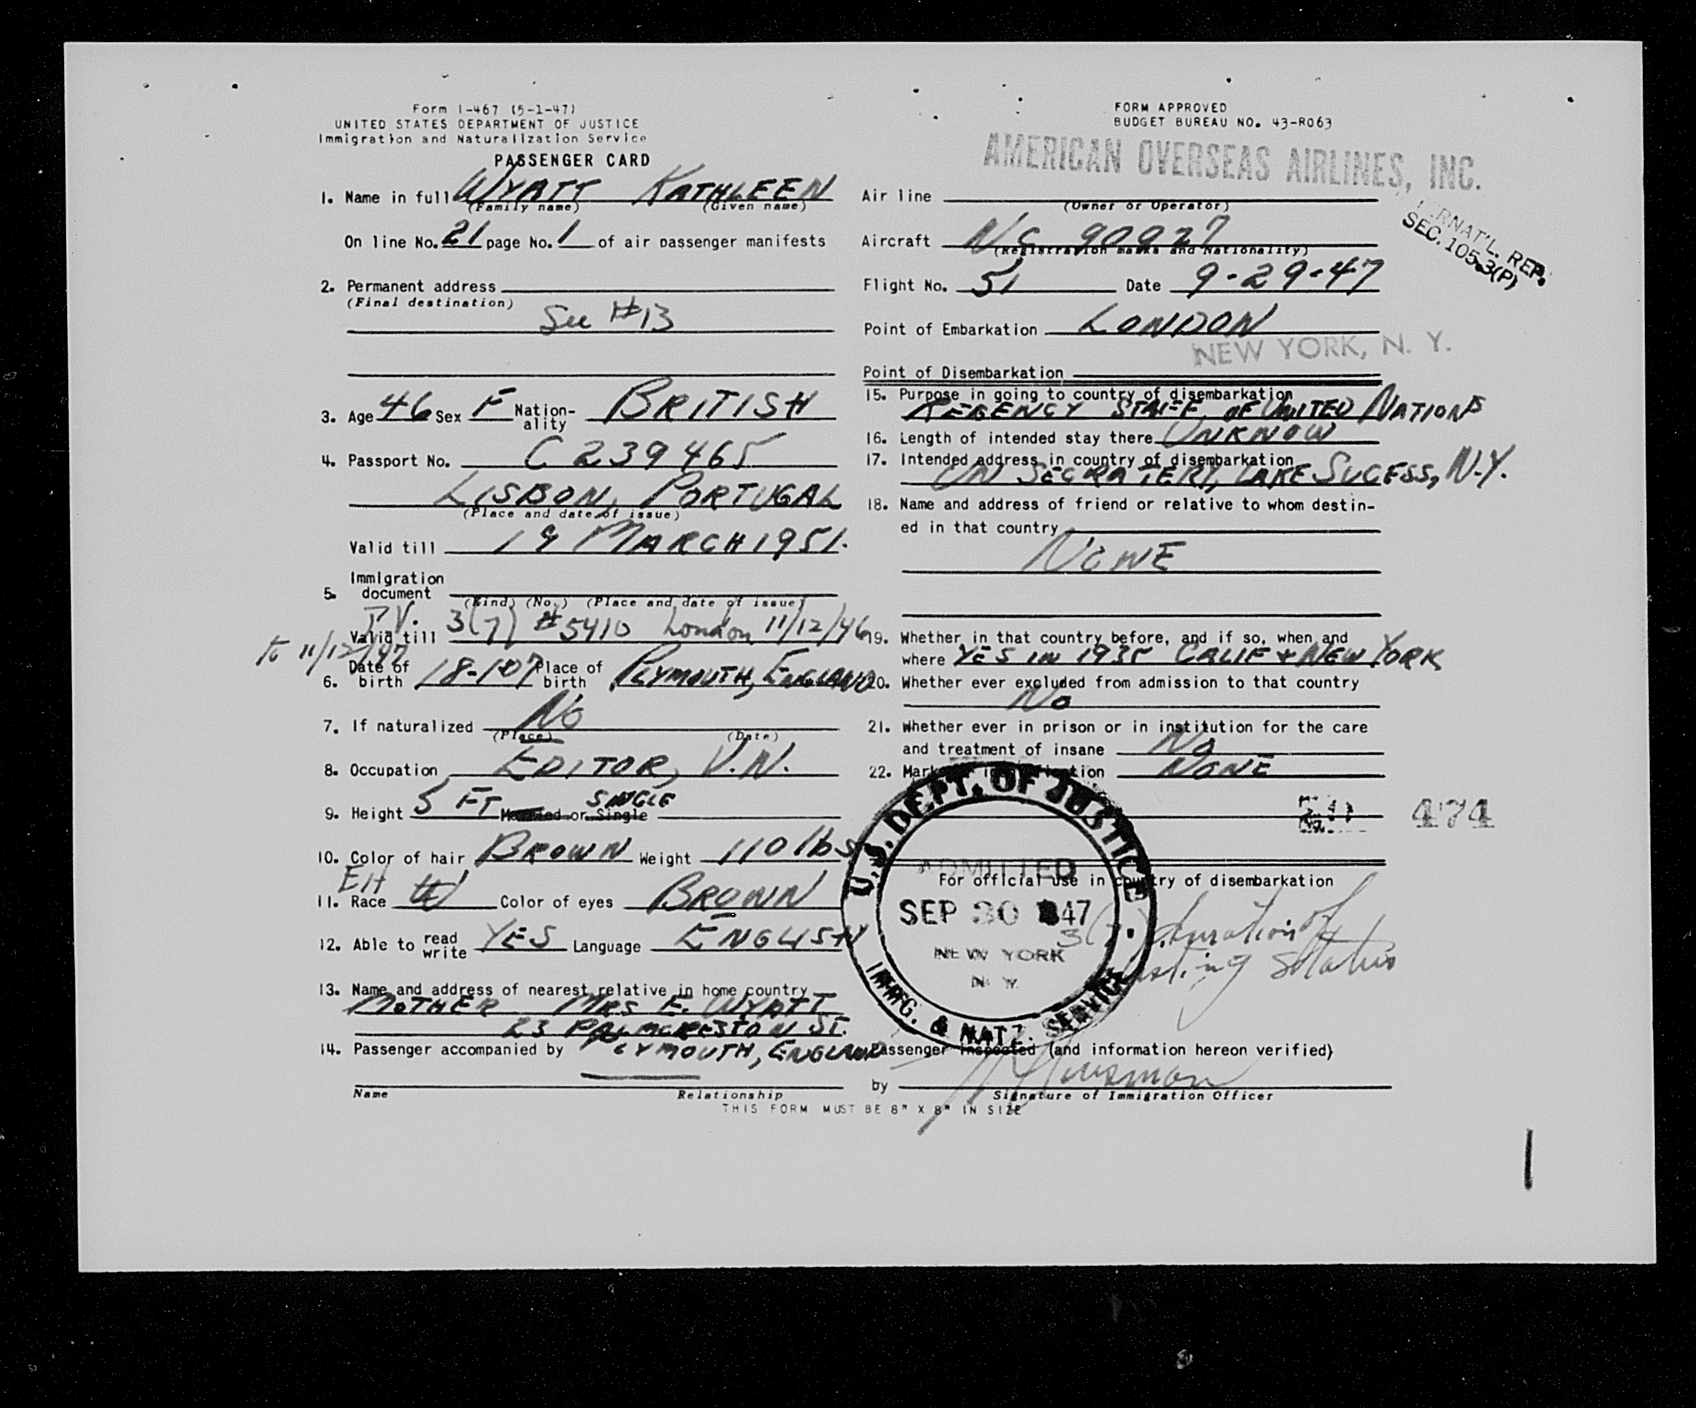 Form I-467 (5-1-47)
UNITED STATES DEPARTMENT OF JUSTICE
Immigration and Naturalization Service
PASSENGER CARD
FORM APPROVED
BUDGET BUREAU NO. 43-R063
AMERICAN OVERSEAS AIRLINES, INC.
NAT'L. REP.
SEC. 105.3(P)
1. Name in full WYATT KATHLEEN
(Family name) (Given name)
On line No. 21 page No. 1 of air passenger manifests
2. Permanent address
(Final destination)
See #13
3. Age 46 Sex F Nation-ality BRITISH
4. Passport No. C 239465
LISBON, PORTUGAL
(Place and date of issue)
Valid till 19 MARCH 1951.
5. Immigration document
(Kind) (No.) (Place and date of issue)
P.V. 3(7) #5410 London 11/12/46
Valid till
to 11/12/47
6. Date of birth 18-1-07 Place of birth PLYMOUTH, ENGLAND
7. If naturalized NO
(Place) (Date)
8. Occupation EDITOR, U.N.
9. Height 5 FT Married or Single SINGLE
10. Color of hair BROWN Weight 110 lbs
EH
11. Race Color of eyes BROWN
12. Able to read write YES Language ENGLISH
13. Name and address of nearest relative in home country
MOTHER MRS E. WYATT
23 PALMERSTON ST.
14. Passenger accompanied by PLYMOUTH, ENGLAND
Name Relationship
THIS FORM MUST BE 8" X 8" IN SIZE
Air line
(Owner or Operator)
Aircraft NC 90927
(Registration marks and Nationality)
Flight No. 51 Date 9-29-47
Point of Embarkation LONDON
NEW YORK, N. Y.
Point of Disembarkation
15. Purpose in going to country of disembarkation
REGENCY STAFF OF UNITED NATIONS
16. Length of intended stay there UNKNOW
17. Intended address in country of disembarkation
UN SECRATERY, LAKE SUCESS, N.Y.
18. Name and address of friend or relative to whom destin-
ed in that country
NONE
19. Whether in that country before, and if so, when and
where YES IN 1935 CALIF + NEW YORK
20. Whether ever excluded from admission to that country
No
21. Whether ever in prison or in institution for the care
and treatment of insane No
22. Marks of identification NONE
474
U.S. DEPT. OF JUSTICE
ADMITTED
SEP 30 1947
NEW YORK
N. Y.
IMMG. & NATZ. SERVICE
For official use in country of disembarkation
3(7) duration of
status
Passenger inspected (and information hereon verified)
by
Signature of Immigration Officer